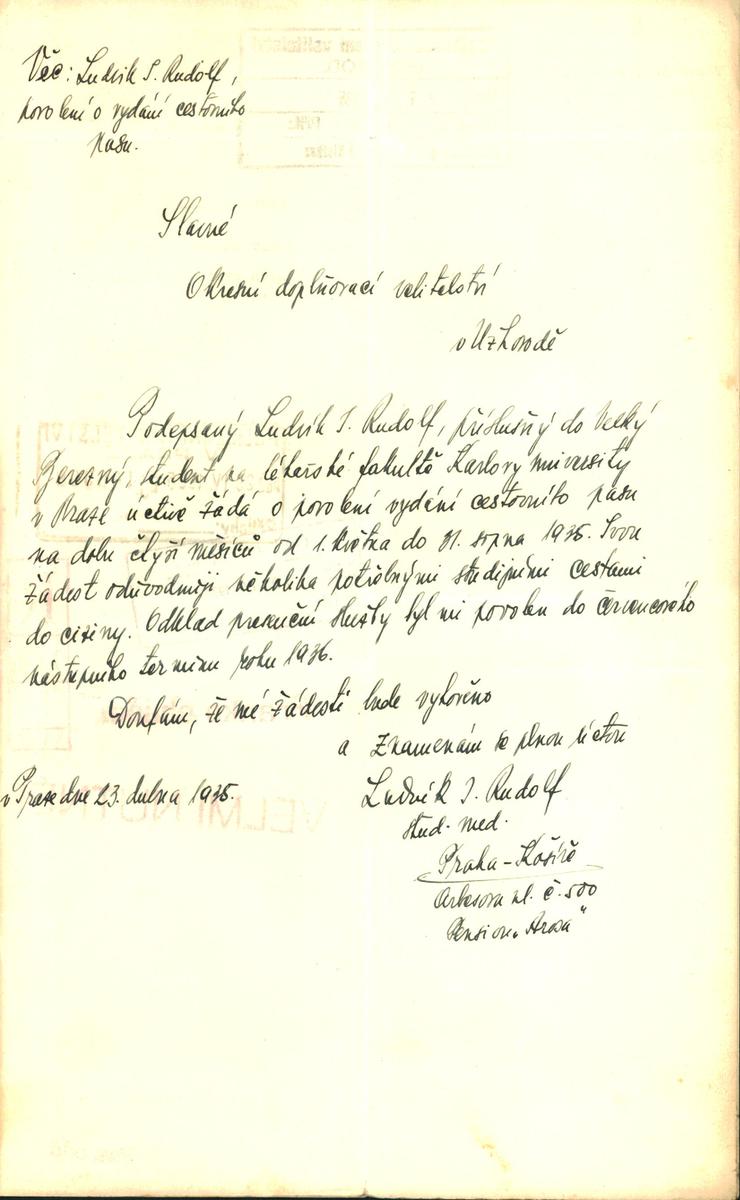 Věc: Ludvík I. Rudolf,
povolení o vydání cestovního
pasu.
Slavné
Okresní doplňovací velitelství
v Užhorodě
Podepsaný Ludvík I. Rudolf, příslušný do Velký
Berezný, student na lékařské fakultě Karlovy university
v Praze uctivě žádá o povolení vydání cestovního pasu
na dobu čtyří měsíců od 1. května do 31. srpna 1935. Svou
žádost odůvodňuji několika potřebnými studijními cestami
do ciziny. Odklad presenční služby byl mi povolen do červencového
nástupního termínu roku 1936.
Doufám, že mé žádosti bude vyhověno
a znamenám se plnou úctou
v Praze dne 23. dubna 1935.
Ludvík I. Rudolf
stud. med.
Praha - Košíře
Arbesova ul. č. 500
Pension „Arosa"
VELMI NUTNÉ